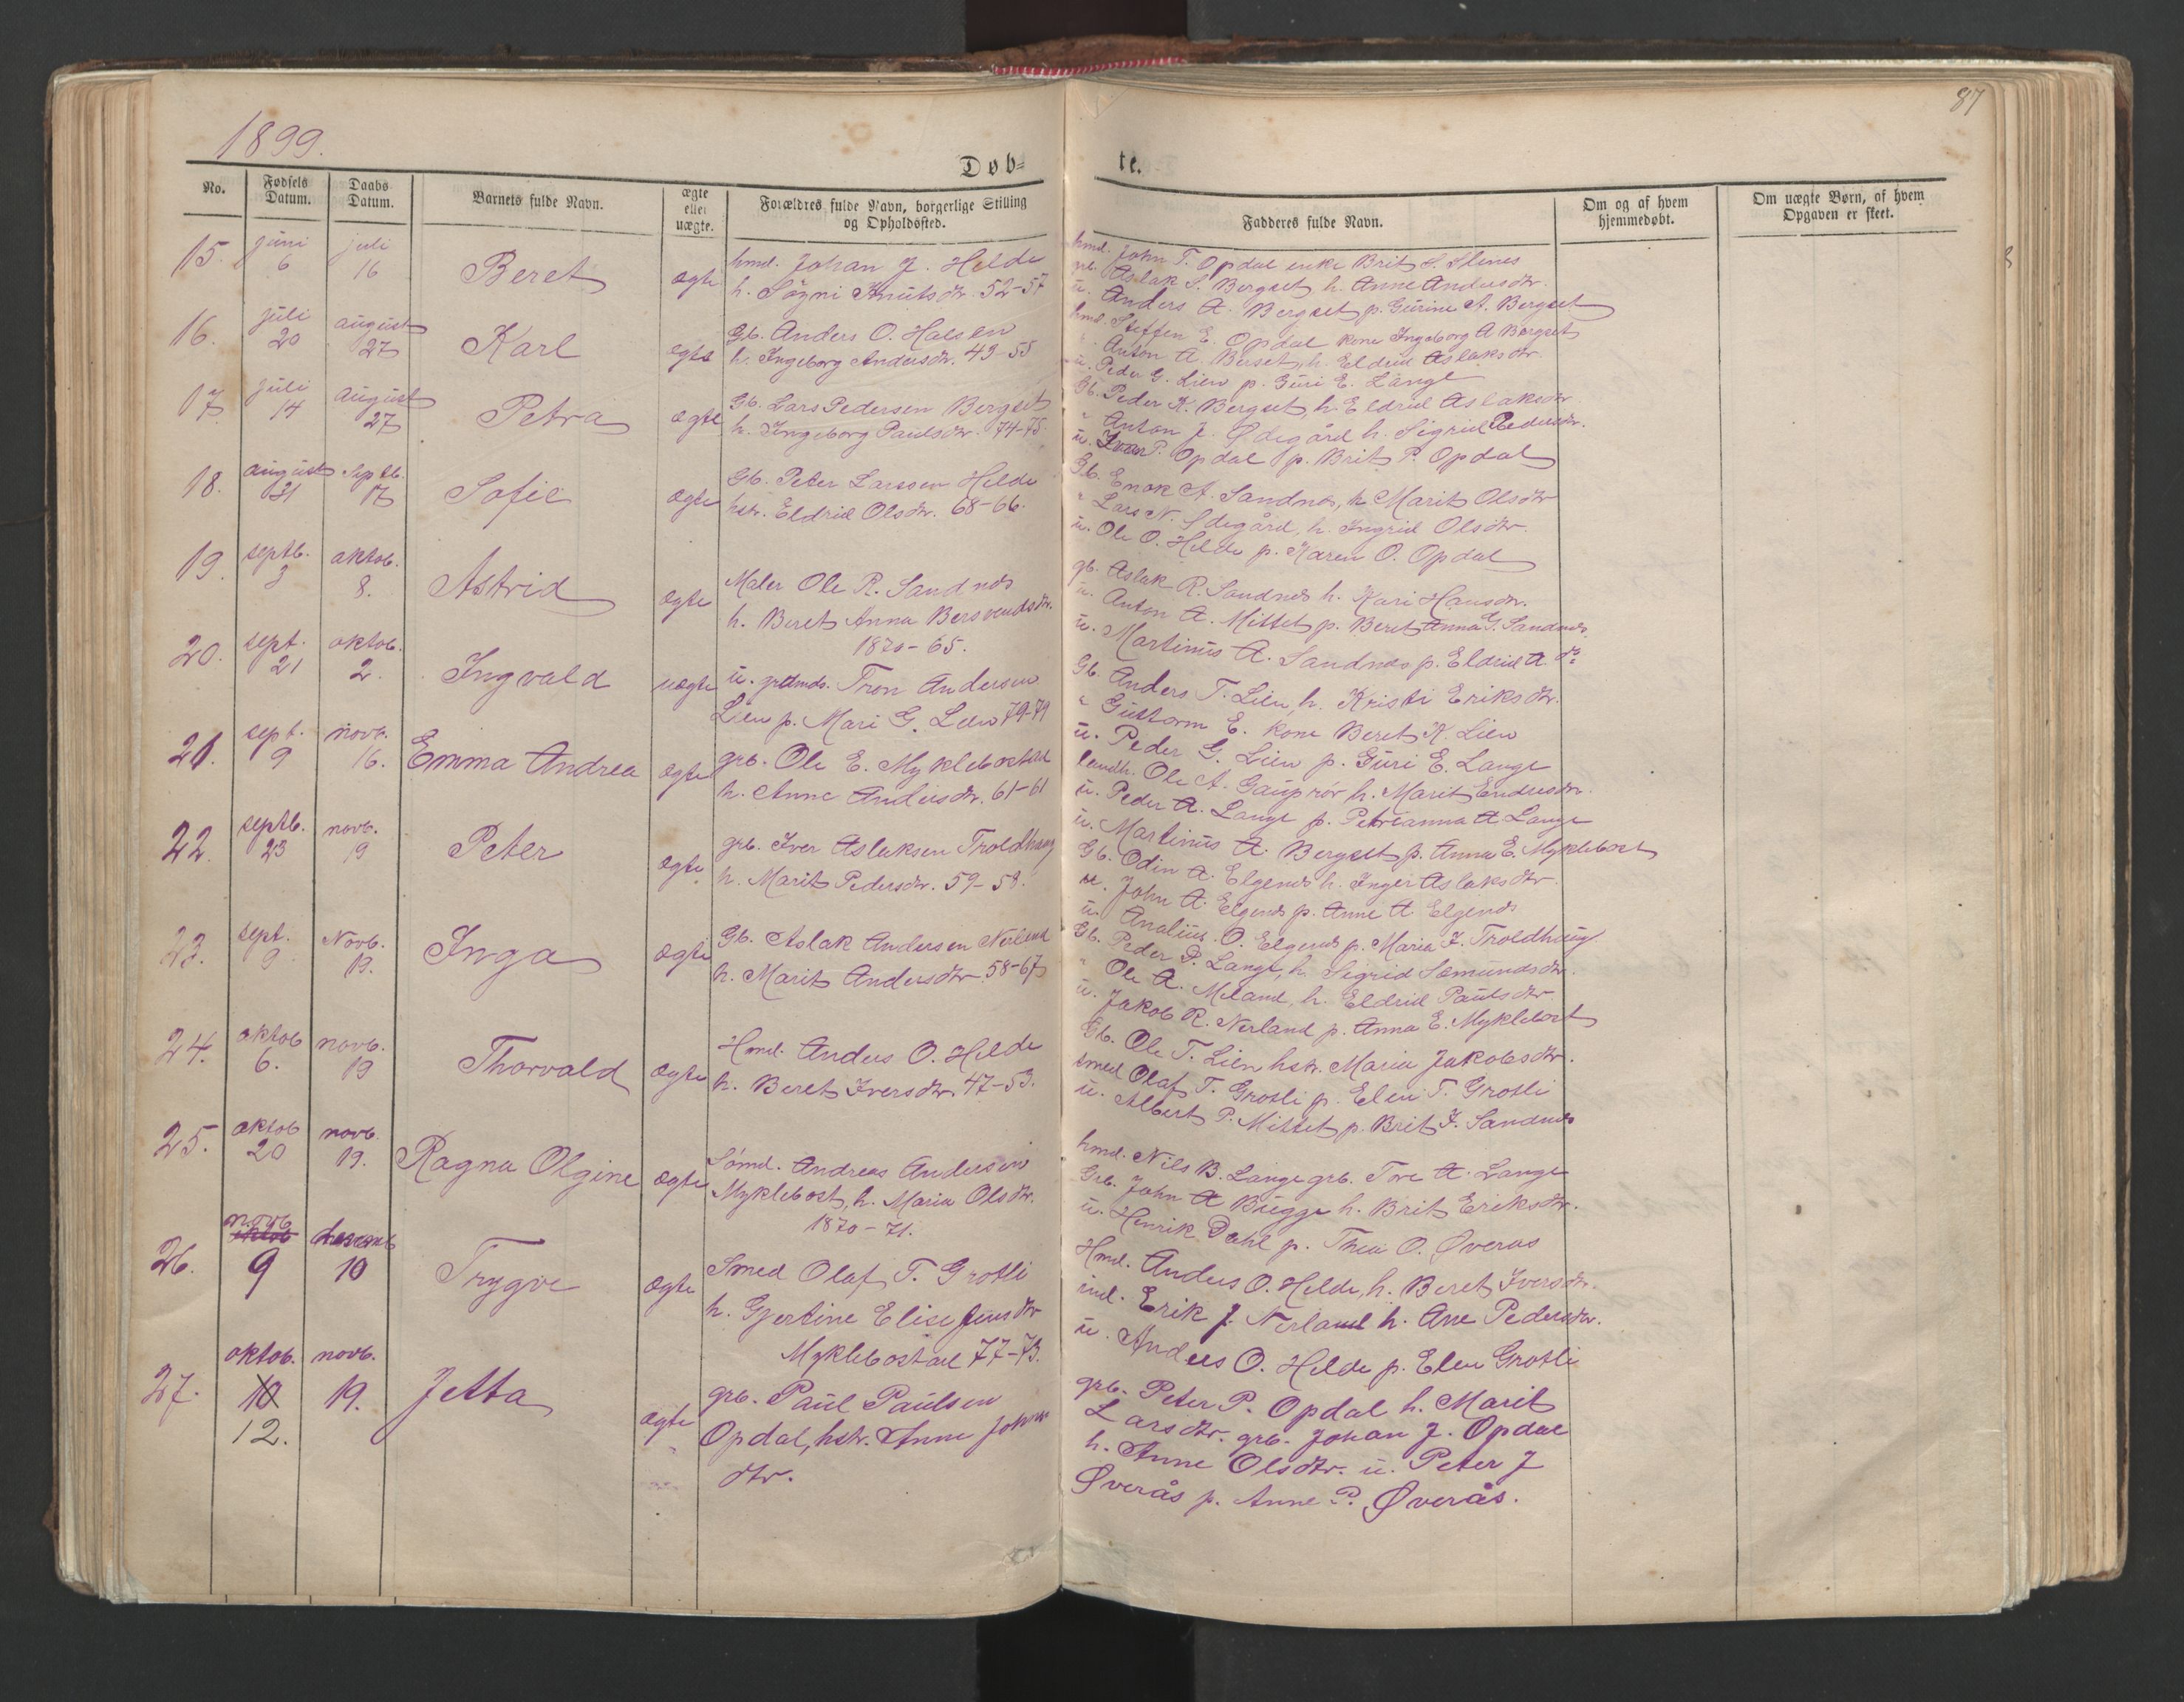 87
1899.
Døb=
te.
No.
Fødsels Datum.
Daabs Datum.
Barnets fulde Navn.
ægte eller uægte.
Forældres fulde Navn, borgerlige Stilling og Opholdssted.
Fadderes fulde Navn.
Om og af hvem hjemmedøbt.
Om uægte Børn, af hvem Opgaven er skeet.
15. juni 6 juli 16 Beret ægte hmd. Johan J. Helde
h. Søgni Knutsdtr. 52-57
hmd. John T. Opdal enke Brit S.
grb. Aslak S. Bergset h. Anne Andersdtr.
u. Anders A. Bergset p. Gurine A. Bergset
16. juli 20 august 27 Karl ægte Gb. Anders O. Halsen
h. Ingeborg Andersdtr. 49-55
hmd. Steffen E. Opdal kone Ingeborg A Bergset
" Anton A. Berset, h. Eldrid Aslaksdtr.
u. Peder G. Lien p. Guri E. Lange
17. juli 14 august 27 Petra ægte Gb. Lars Pedersen Bergset
h. Ingeborg Paulsdtr. 74-75
Gb. Peder K. Bergset, h. Eldrid Aslaksdtr.
" Anton J. Ødegård h. Sigrid Pedersdtr.
u. Ivar P. Opdal p. Brit P. Opdal
18. august 31 septb. 17 Sofie ægte Gb. Peter Larssen Helde
hstr. Eldrid Olsdtr. 68-66.
Gb. Enok A. Sandnes, h. Marit Olsdtr
" Lars N. Ødegård, h. Ingrid Olsdtr.
u. Ole O. Helde p. Karen O. Opdal
19. septb. 3 oktob. 8. Astrid ægte Maler Ole R. Sandnes
h. Beret Anna Bersvendsdtr.
1870-65.
gb. Aslak R. Sandnes h. Kari Hansdtr.
u. Anton A. Mittet p. Beret Anna G. Sandnes.
u. Martinus A. Sandnes p. Eldrid A. do
20. sept. 21 oktob. 2. Ingvald uægte u. grdmds. Tron Andersen
Lien p. Mari G. Lien 79-79
Gb. Anders T. Lien, h. Kristi Eriksdtr.
" Guttorm E. kone Beret K. Lien
u. Peder G. Lien p. Guri E. Lange
21. sept. 9 novb. 16. Emma Andrea ægte grb. Ole E. Myklebostad
h. Anne Andersdtr. 61-61
landh. Ole A. Gauprør h. Marit Endresdtr.
u. Peder A. Lange p. Petrianna A Lange
u. Martinus A. Bergset p. Anna E. Myklebost
22. septb. 23 novb. 19 Peter ægte grb. Iver Aslaksen Troldhaug
h. Marit Pedersdtr. 59-58.
Gb. Odin A. Elgenes h. Inger Aslaksdtr.
u. John A. Elgenes p. Anne A. Elgenes
u. Analius O. Elgenes p. Maria I. Troldhaug
23. sept. 9 Novb. 19. Inga ægte Gb. Aslak Andersen Nerland
h. Marit Andersdtr. 58-67
Gb. Peder P. Lange, h. Sigrid Sæmundsdtr.
" Ole A. Meland, h. Eldrid Paulsdtr
u. Jakob R. Nerland p. Anna E. Myklebost
24. oktob 6. novb. 19 Thorvald ægte Hmd. Anders O. Helde
h. Beret Iversdtr. 47-53.
Gb. Ole T. Lien hstr. Maria Jakobsdtr.
smed Olaf T. Grotli p. Elen T. Grotli
u. Albert P. Mittet p. Brit I. Sandnes
25. oktob 20 novb. 19. Ragna Olgine ægte Sømd. Andreas Andersen
Myklebost, h. Maria Olsdtr.
1870-71.
hmd. Nils B. Lange grb. Tore A. Lange
Grb. John A Bugge h. Brit Eriksdtr.
u. Henrik Dahl p. Thea O. Øveraas
26. novb oktob 9 10 Trygve ægte Smed Olaf T. Grotli
h. Gjertine Elise Jensdtr
Myklebostad 77-73.
Hmd. Anders O. Helde, h. Beret Iversdtr.
ind. Erik J. Nerland h. Ane Pedersdtr.
u. Anders O. Helde p. Elen Grotli
27. oktob. 10 12. novb. 19. Jetta ægte grb. Paul Paulsen
Opdal, hstr. Anne Johans
dtr.
grb. Peter P. Opdal h. Marit
Larsdtr. grb. Johan J. Opdal
h. Anne Olsdtr. u. Peter J
Øverås p. Anne P. Øverås.